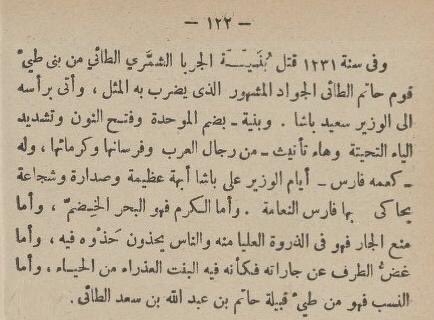 — ١٢٢ —
وفى سنة ١٢٣١ قتل بُنَيَّة الجربا الشمَّرى الطائى من بنى طىْ
قوم حاتم الطائى الجواد المشهور الذى يضرب به المثل ، وأتى برأسه
الى الوزير سعيد باشا . وبنية ــ بضم الموحدة وفتح النون وتشديد
الياء التحتية وهاء تأنيث ــ من رجال العرب وفرسانها وكرمائها ، وله
ــ كعمه فارس ــ أيام الوزير على باشا أبهة عظيمة وصدارة وشجاعة
يحاكى بها فارس النعامة . وأما الكرم فهو البحر الخِضمّ ، وأما
منع الجار فهو فى الذروة العليا منه والناس يحذون حَذْوه فيه ، وأما
غضُّ الطرف عن جاراته فكأنه فيه البنت العذراء من الحياء ، وأما
النسب فهو من طىْ قبيلة حاتم بن عبد الله بن سعد الطائى .